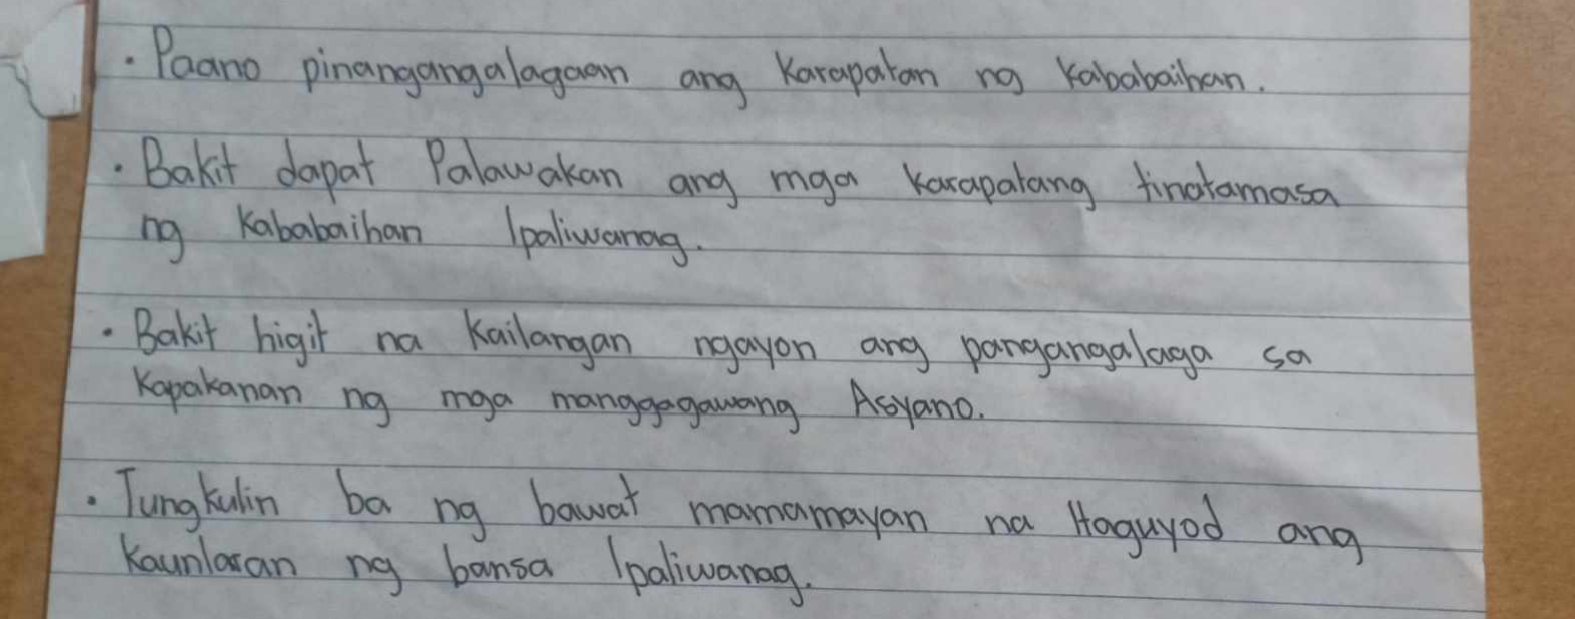 • Paano pinangangalagaan ang Karapatan ng Kababaihan.
• Bakit dapat Palawakan ang mga Karapatang tinatamasa
ng Kababaihan Ipaliwanag.
• Bakit higit na Kailangan ngayon ang pangangalaga sa
Kapakanan ng mga manggagawang Asyano.
• Tungkulin ba ng bawat mamamayan na Itaguyod ang
Kaunlaran ng bansa Ipaliwanag.